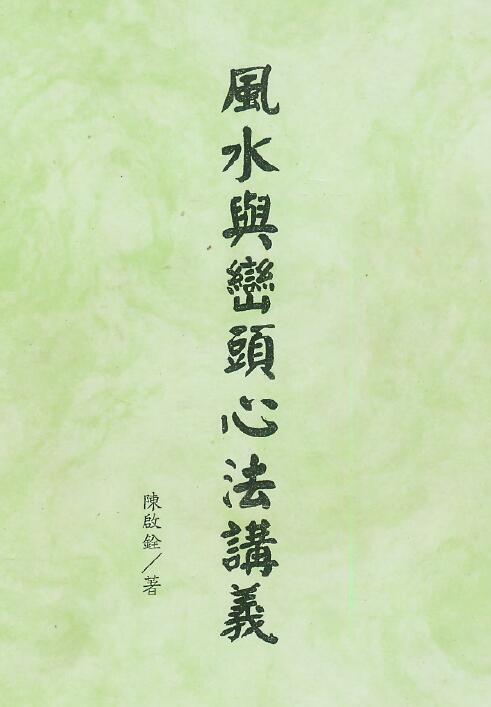 風水與巒頭心法講義
陳啟銓／著